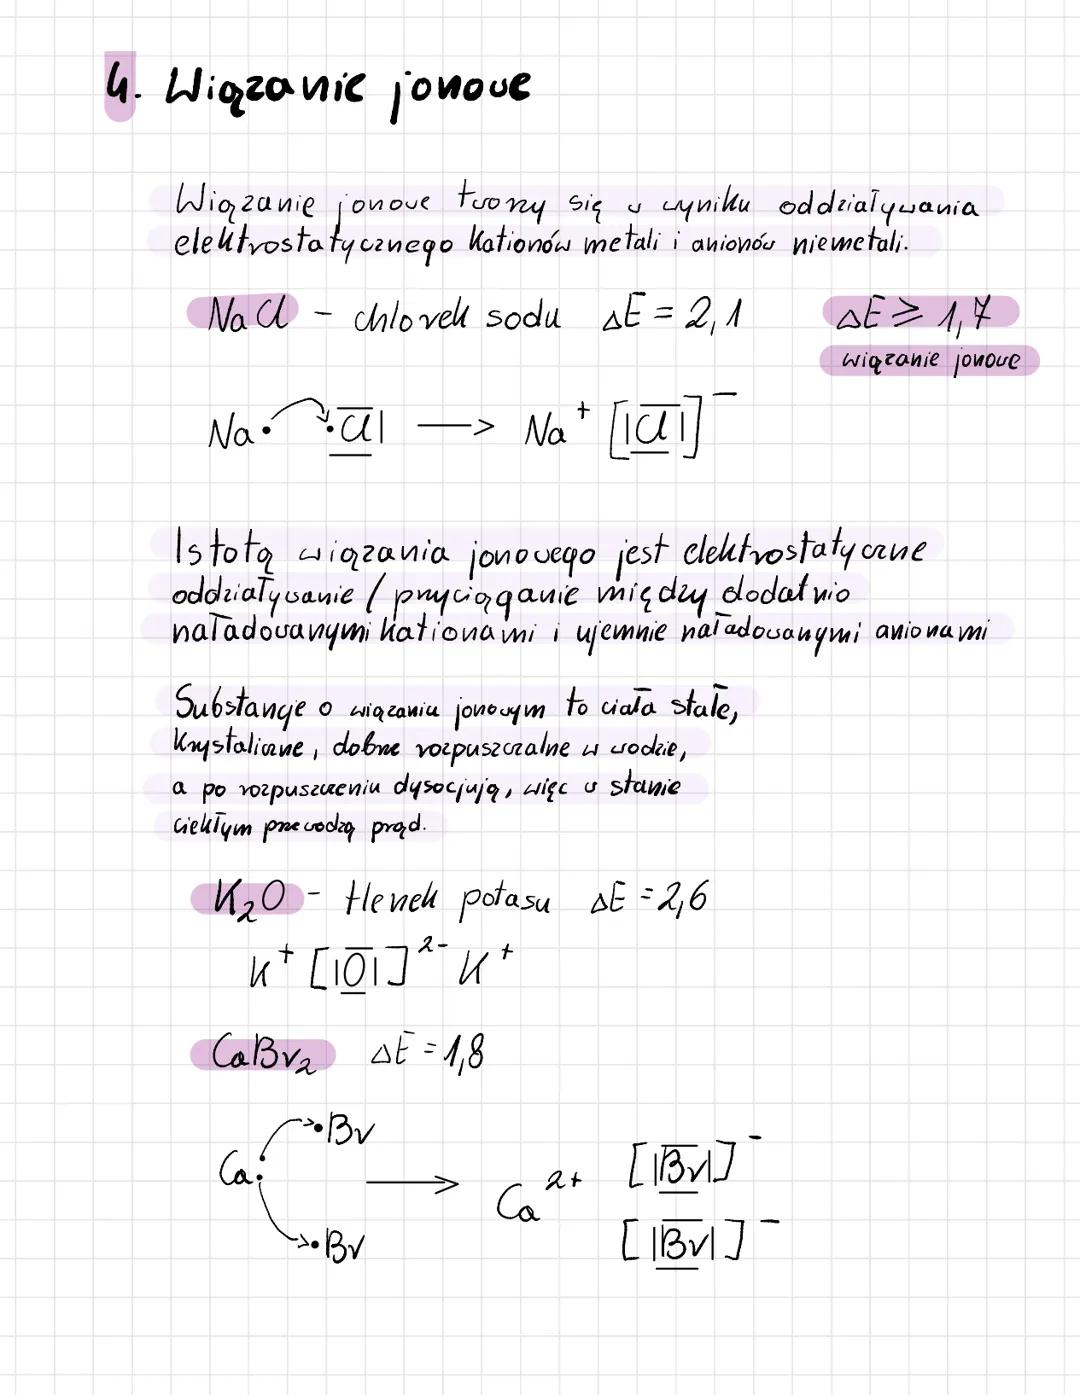 4. Wiązanie jonowe
Wiązanie jonowe tworzy się w wyniku oddziaływania
elektrostatycznego kationów metali i anionów niemetali.
NaCl - chlorek sodu ΔE = 2,1 ΔE ⩾ 1,7
wiązanie jonowe
Na· ·C̲̅l̲̅| ⟶ Na⁺ [|C̲̅l̲̅|]⁻
Istotą wiązania jonowego jest elektrostatyczne
oddziaływanie / przyciąganie między dodatnio
naładowanymi kationami i ujemnie naładowanymi anionami
Substancje o wiązaniu jonowym to ciała stałe,
krystaliczne, dobrze rozpuszczalne w wodzie,
a po rozpuszczeniu dysocjują, więc w stanie
ciekłym przewodzą prąd.
K₂O - tlenek potasu ΔE = 2,6
K⁺ [|O̲̅|]²⁻ K⁺
CaBr₂ ΔE = 1,8
·Br
Ca: ⟶ Ca²⁺ [|B̲̅r̲̅|]⁻
·Br [|B̲̅r̲̅|]⁻